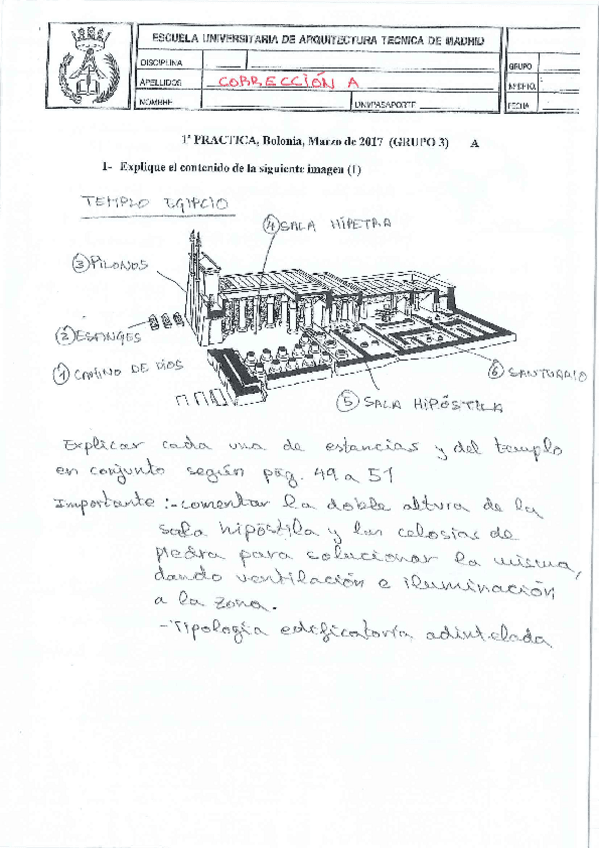 ESCUELA UNIVERSITARIA DE ARQUITECTURA TECNICA DE MADRID
DISCIPLINA
GRUPO
APELLIDOS CORRECCIÓN A
NOMBRE
FECHA
1ª PRACTICA, Bolonia, Marzo de 2017 (GRUPO 3) A
1- Explique el contenido de la siguiente imagen (1)
TEMPLO EGIPCIO
④ SALA HIPETRA
③ PILONOS
② ESFINGES
① CAMINO DE DIOS
⑥ SANTUARIO
⑤ SALA HIPÓSTILA
Explicar cada una de estancias y del templo
en conjunto según pág. 49 a 51
Importante :- comentar la doble altura de la
sala hipóstila y las celosías de
piedra para solucionar la misma,
dando ventilación e iluminación
a la zona.
- Tipología edificatoria adintelada